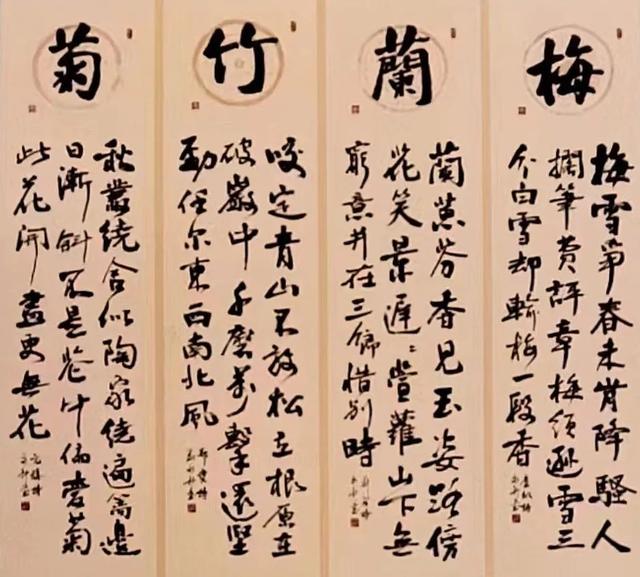 梅
梅雪爭春未肯降騷人
擱筆費評章梅須遜雪三
分白雪却輸梅一段香
蘭
蘭蕙芬香見玉姿路傍
花笑景遲〻蘿山下無
窮意并在三惜別時
竹
咬定青山不放松立根原在
破巖中千磨萬擊還堅
勁任尔東西南北風
菊
秋叢繞舍似陶家繞遍籬邊
日漸斜不是花中偏愛菊
此花開盡更無花
元稹詩